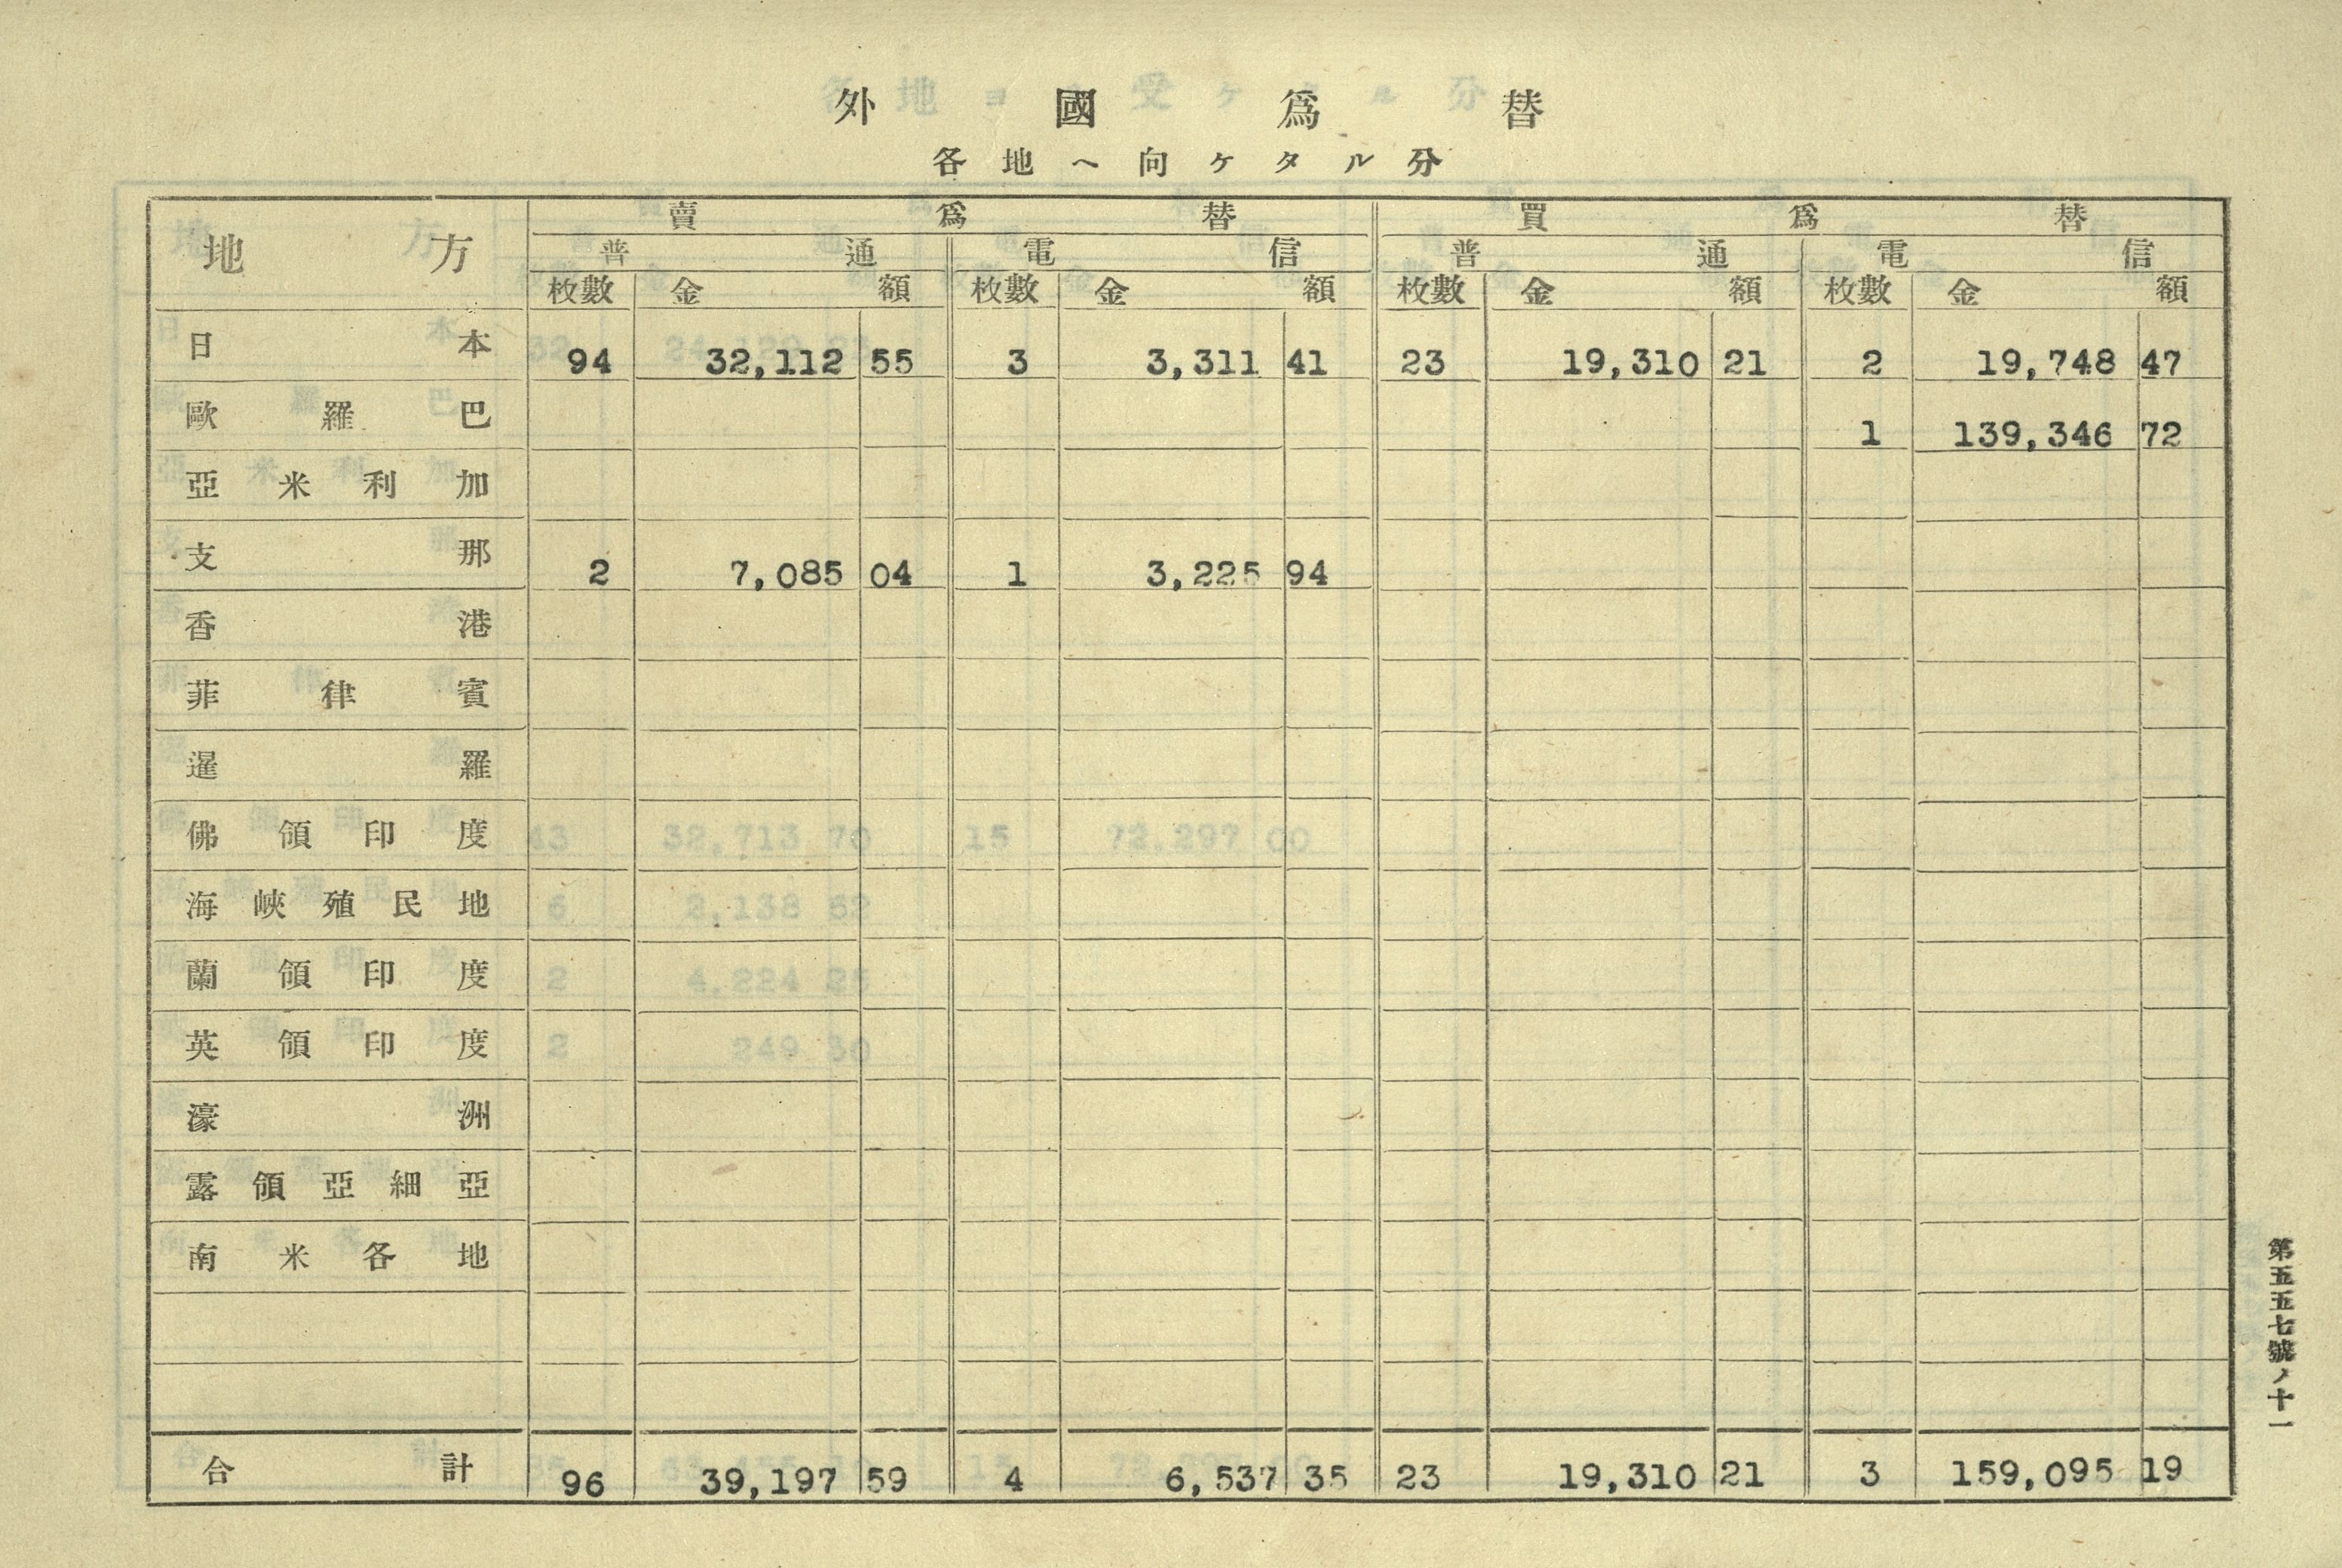 外國爲替
各地ヘ向ケタル分
地方 賣爲替 買爲替
普通 電信 普通 電信
枚數 金額 枚數 金額 枚數 金額 枚數 金額
日本 94 32,112 55 3 3,311 41 23 19,310 21 2 19,748 47
歐羅巴 1 139,346 72
亞米利加
支那 2 7,085 04 1 3,225 94
香港
菲律賓
暹羅
佛領印度
海峽殖民地
蘭領印度
英領印度
濠洲
露領亞細亞
南米各地
合計 96 39,197 59 4 6,537 35 23 19,310 21 3 159,095 19
第五五七號ノ十一